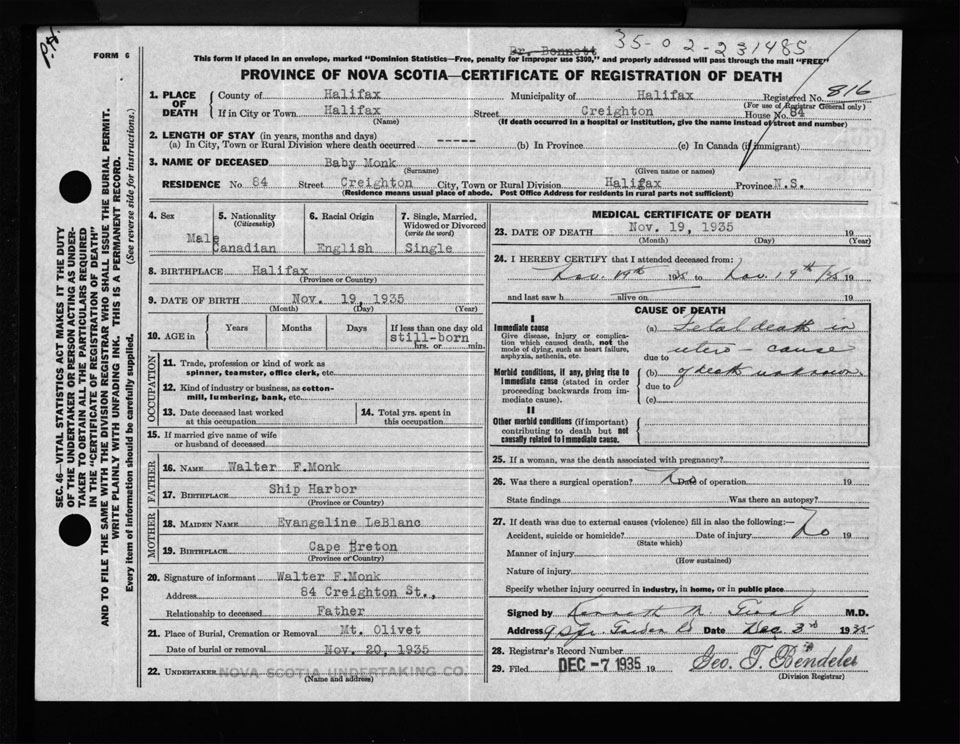 P.H.
Dr. Bonnett 35-02-231485
FORM 6
This form if placed in an envelope, marked "Dominion Statistics—Free, penalty for improper use $300," and properly addressed will pass through the mail "FREE"
PROVINCE OF NOVA SCOTIA—CERTIFICATE OF REGISTRATION OF DEATH
1. PLACE OF DEATH County of Halifax Municipality of Halifax Registered No. 816
(For use of Registrar General only)
If in City or Town Halifax Street Creighton House No. 84
(Name) (If death occurred in a hospital or institution, give the name instead of street and number)
2. LENGTH OF STAY (in years, months and days)
(a) In City, Town or Rural Division where death occurred ----- (b) In Province (c) In Canada (if immigrant)
3. NAME OF DECEASED Baby Monk
(Surname) (Given name or names)
RESIDENCE No. 84 Street Creighton City, Town or Rural Division Halifax Province N.S.
(Residence means usual place of abode. Post Office Address for residents in rural parts not sufficient)
4. Sex Male
5. Nationality (Citizenship) Canadian
6. Racial Origin English
7. Single, Married, Widowed or Divorced (write the word) Single
8. BIRTHPLACE Halifax
(Province or Country)
9. DATE OF BIRTH Nov. 19, 1935
(Month) (Day) (Year)
10. AGE in Years Months Days If less than one day old
still-born
hrs. or min.
OCCUPATION
11. Trade, profession or kind of work as
spinner, teamster, office clerk, etc.
12. Kind of industry or business, as cotton-
mill, lumbering, bank, etc.
13. Date deceased last worked
at this occupation
14. Total yrs. spent in
this occupation
15. If married give name of wife
or husband of deceased
FATHER
16. NAME Walter F.Monk
17. BIRTHPLACE Ship Harbor
MOTHER
18. MAIDEN NAME Evangeline LeBlanc
19. BIRTHPLACE Cape Breton
(Province or Country)
20. Signature of informant Walter F.Monk
Address 84 Creighton St.,
Relationship to deceased Father
21. Place of Burial, Cremation or Removal Mt. Olivet
Date of burial or removal Nov. 20, 1935
22. UNDERTAKER NOVA SCOTIA UNDERTAKING CO.
(Name and address)
MEDICAL CERTIFICATE OF DEATH
23. DATE OF DEATH Nov. 19, 1935 19
(Month) (Day) (Year)
24. I HEREBY CERTIFY that I attended deceased from:
Nov. 19th 1935 to Nov. 19th/35 19
and last saw h alive on 19
CAUSE OF DEATH
I
Immediate cause
Give disease, injury or complica-
tion which caused death, not the
mode of dying, such as heart failure,
asphyxia, asthenia, etc.
(a) Fetal death in
due to utero - cause
Morbid conditions, if any, giving rise to
immediate cause (stated in order
proceeding backwards from im-
mediate cause).
(b) of death unknown
due to
(c)
II
Other morbid conditions (if important)
contributing to death but not
causally related to immediate cause.
25. If a woman, was the death associated with pregnancy?
26. Was there a surgical operation? No Date of operation 19
State findings Was there an autopsy?
27. If death was due to external causes (violence) fill in also the following:—
Accident, suicide or homicide? Date of injury No 19
(State which)
Manner of injury
(How sustained)
Nature of injury
Specify whether injury occurred in industry, in home, or in public place
Signed by Kenneth M. M.D.
Address Date Dec. 3rd 1935
28. Registrar's Record Number
29. Filed DEC -7 1935 19 Geo. T. Bendeler
(Division Registrar)
SEC. 46—VITAL STATISTICS ACT MAKES IT THE DUTY
OF THE UNDERTAKER OR PERSON ACTING AS UNDER-
TAKER TO OBTAIN ALL THE PARTICULARS REQUIRED
IN THE "CERTIFICATE OF REGISTRATION OF DEATH"
AND TO FILE THE SAME WITH THE DIVISION REGISTRAR WHO SHALL ISSUE THE BURIAL PERMIT.
WRITE PLAINLY WITH UNFADING INK. THIS IS A PERMANENT RECORD.
Every item of information should be carefully supplied. (See reverse side for instructions.)